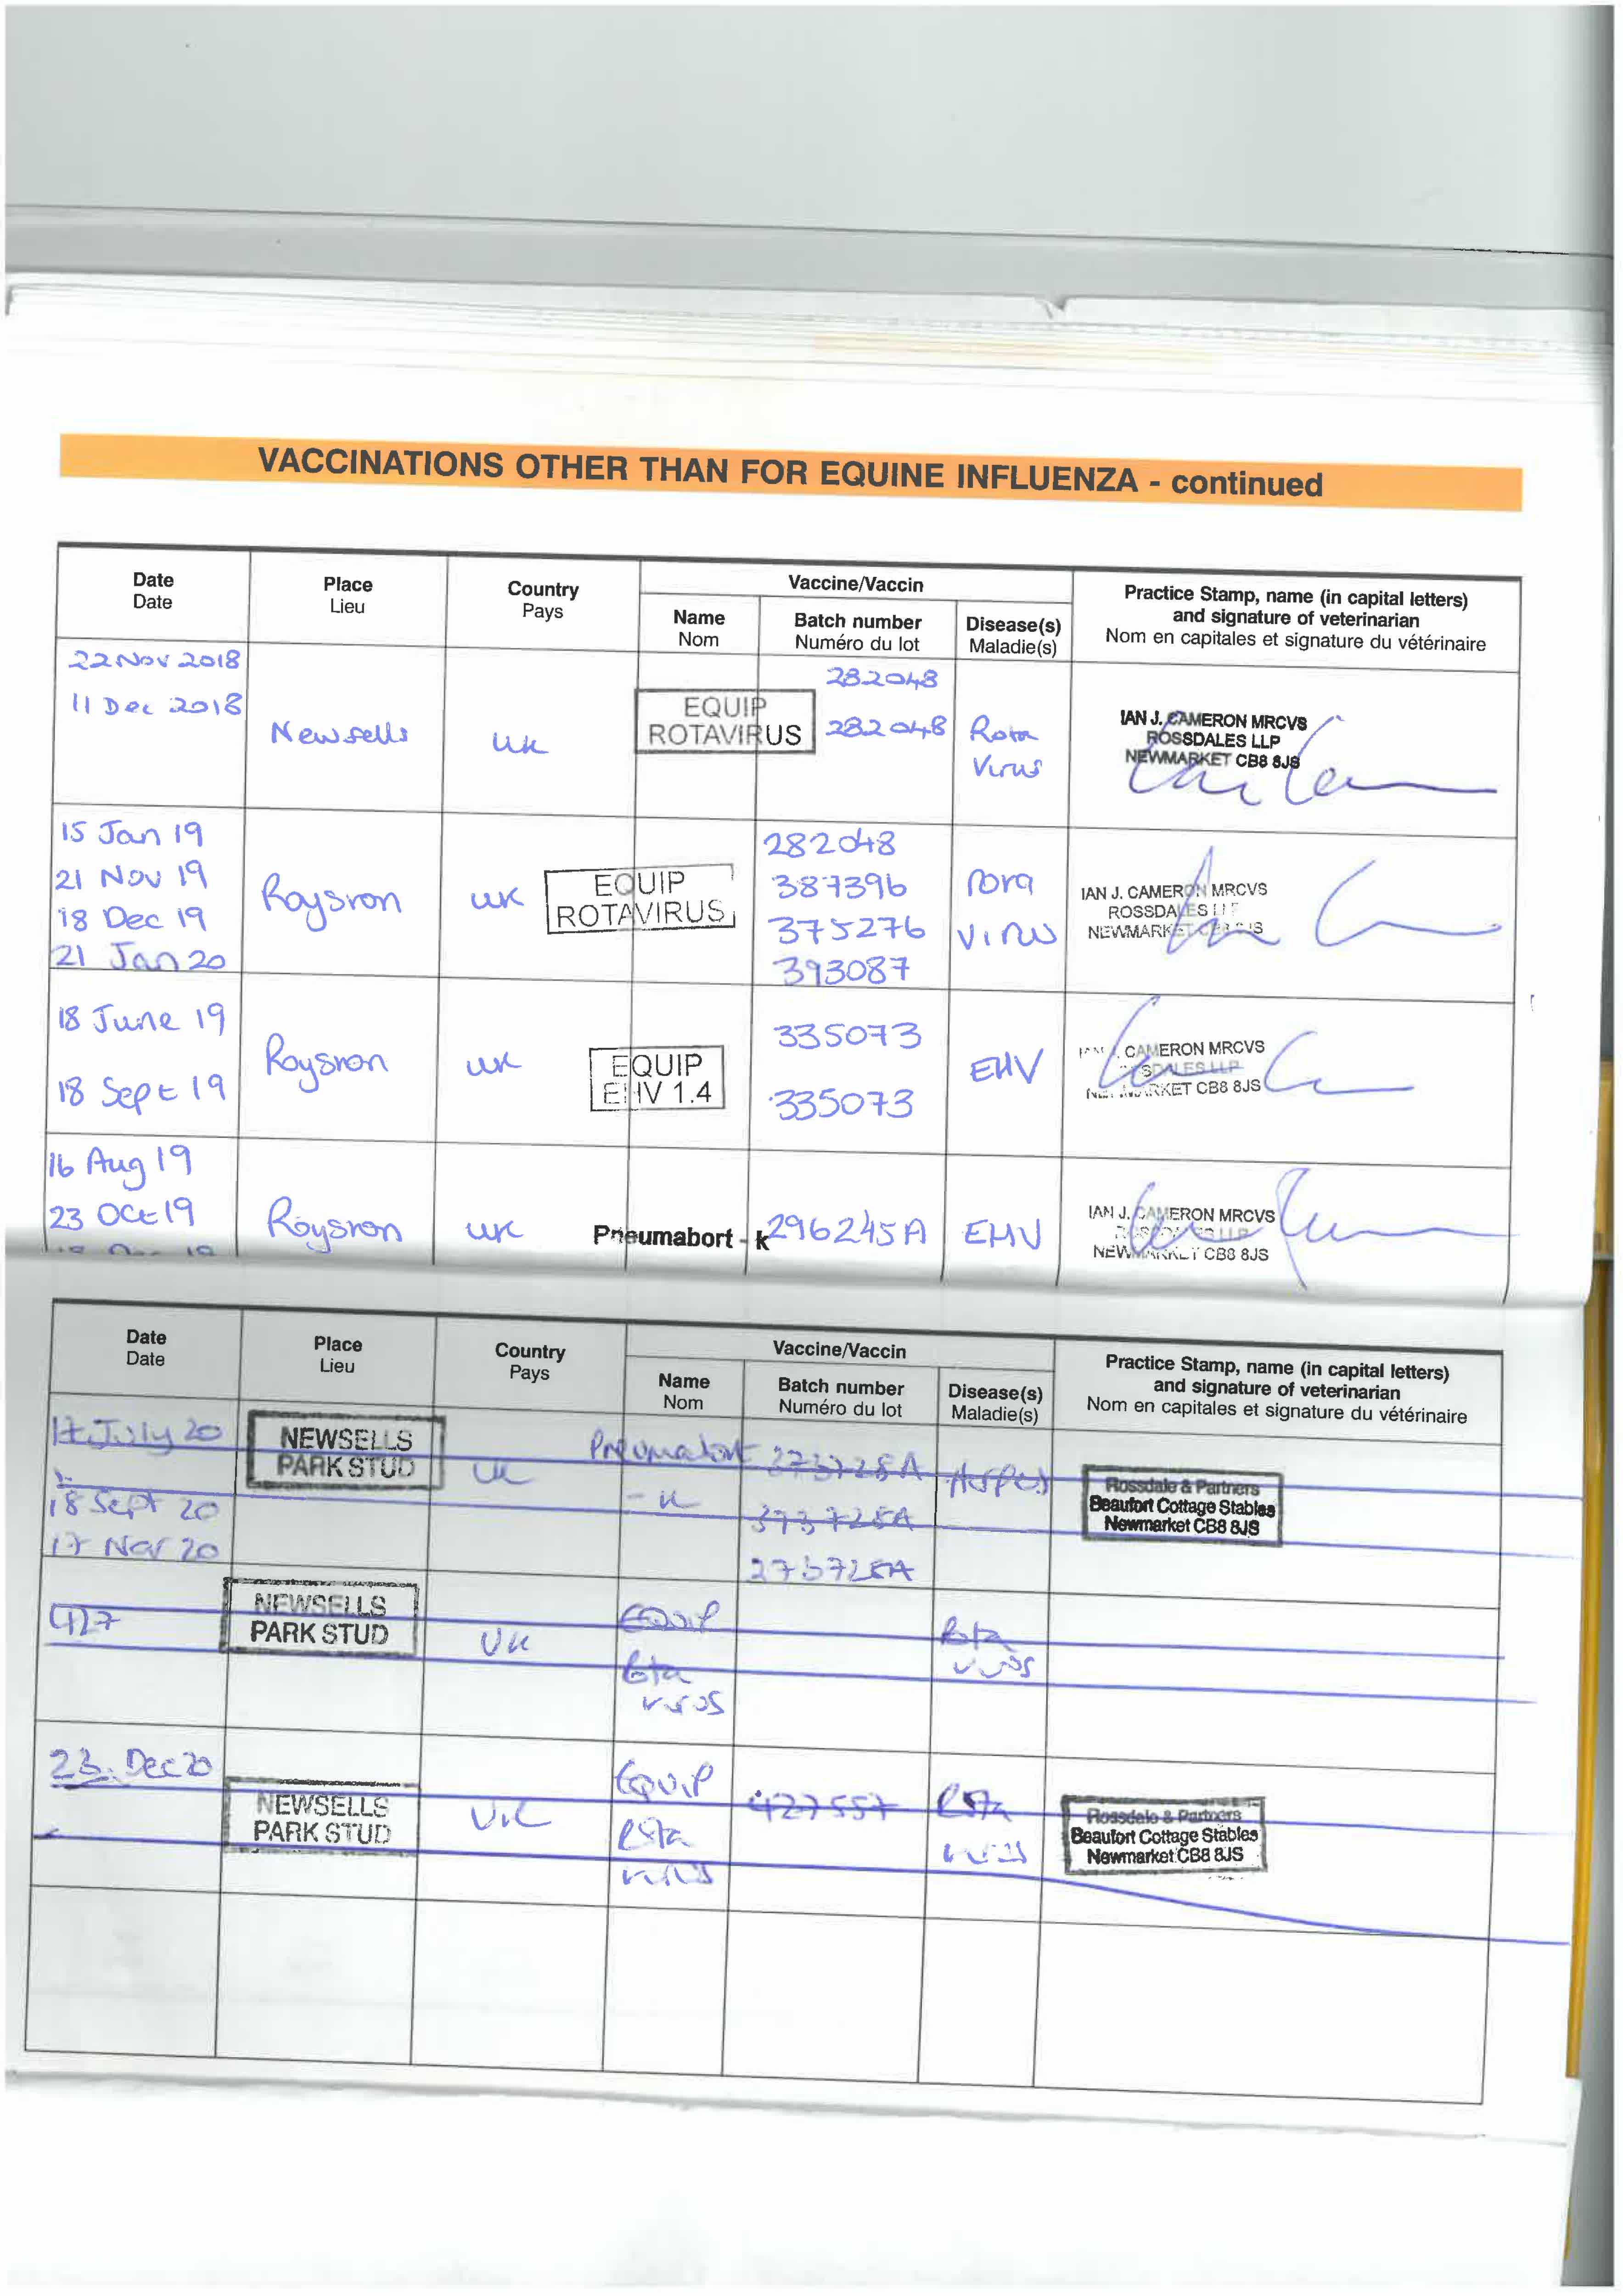 VACCINATIONS OTHER THAN FOR EQUINE INFLUENZA - continued
Date
Date
Place
Lieu
Country
Pays
Vaccine/Vaccin
Name
Nom
Batch number
Numéro du lot
Disease(s)
Maladie(s)
Practice Stamp, name (in capital letters)
and signature of veterinarian
Nom en capitales et signature du vétérinaire
22 Nov 2018
11 Dec 2018
Newsells
UK
EQUIP
ROTAVIRUS
282048
282048
Rota
Virus
IAN J. CAMERON MRCVS
ROSSDALES LLP
NEWMARKET CB8 8JS
15 Jan 19
21 Nov 19
18 Dec 19
21 Jan 20
Royston
UK
EQUIP
ROTAVIRUS
282048
387396
375276
393087
Rota
Virus
IAN J. CAMERON MRCVS
ROSSDALES
NEWMARKET
18 June 19
18 Sept 19
Royston
UK
EQUIP
EHV 1.4
335073
335073
EHV
CAMERON MRCVS
CB8 8JS
16 Aug 19
23 Oct 19
Royston
UK
Pneumabort - k
296245A
EHV
IAN J. CAMERON MRCVS
NEWMARKET CB8 8JS
Date
Date
Place
Lieu
Country
Pays
Vaccine/Vaccin
Name
Nom
Batch number
Numéro du lot
Disease(s)
Maladie(s)
Practice Stamp, name (in capital letters)
and signature of veterinarian
Nom en capitales et signature du vétérinaire
17 July 20
18 Sept 20
17 Nov 20
NEWSELLS
PARK STUD
UK
Pneumabort
- K
Herpes
Rossdale & Partners
Beaufort Cottage Stables
Newmarket CB8 8JS
NEWSELLS
PARK STUD
UK
Equip
Rota
virus
Rota
virus
23 Dec 20
NEWSELLS
PARK STUD
UK
Equip
Rota
virus
427557
Rota
virus
Rossdale & Partners
Beaufort Cottage Stables
Newmarket CB8 8JS